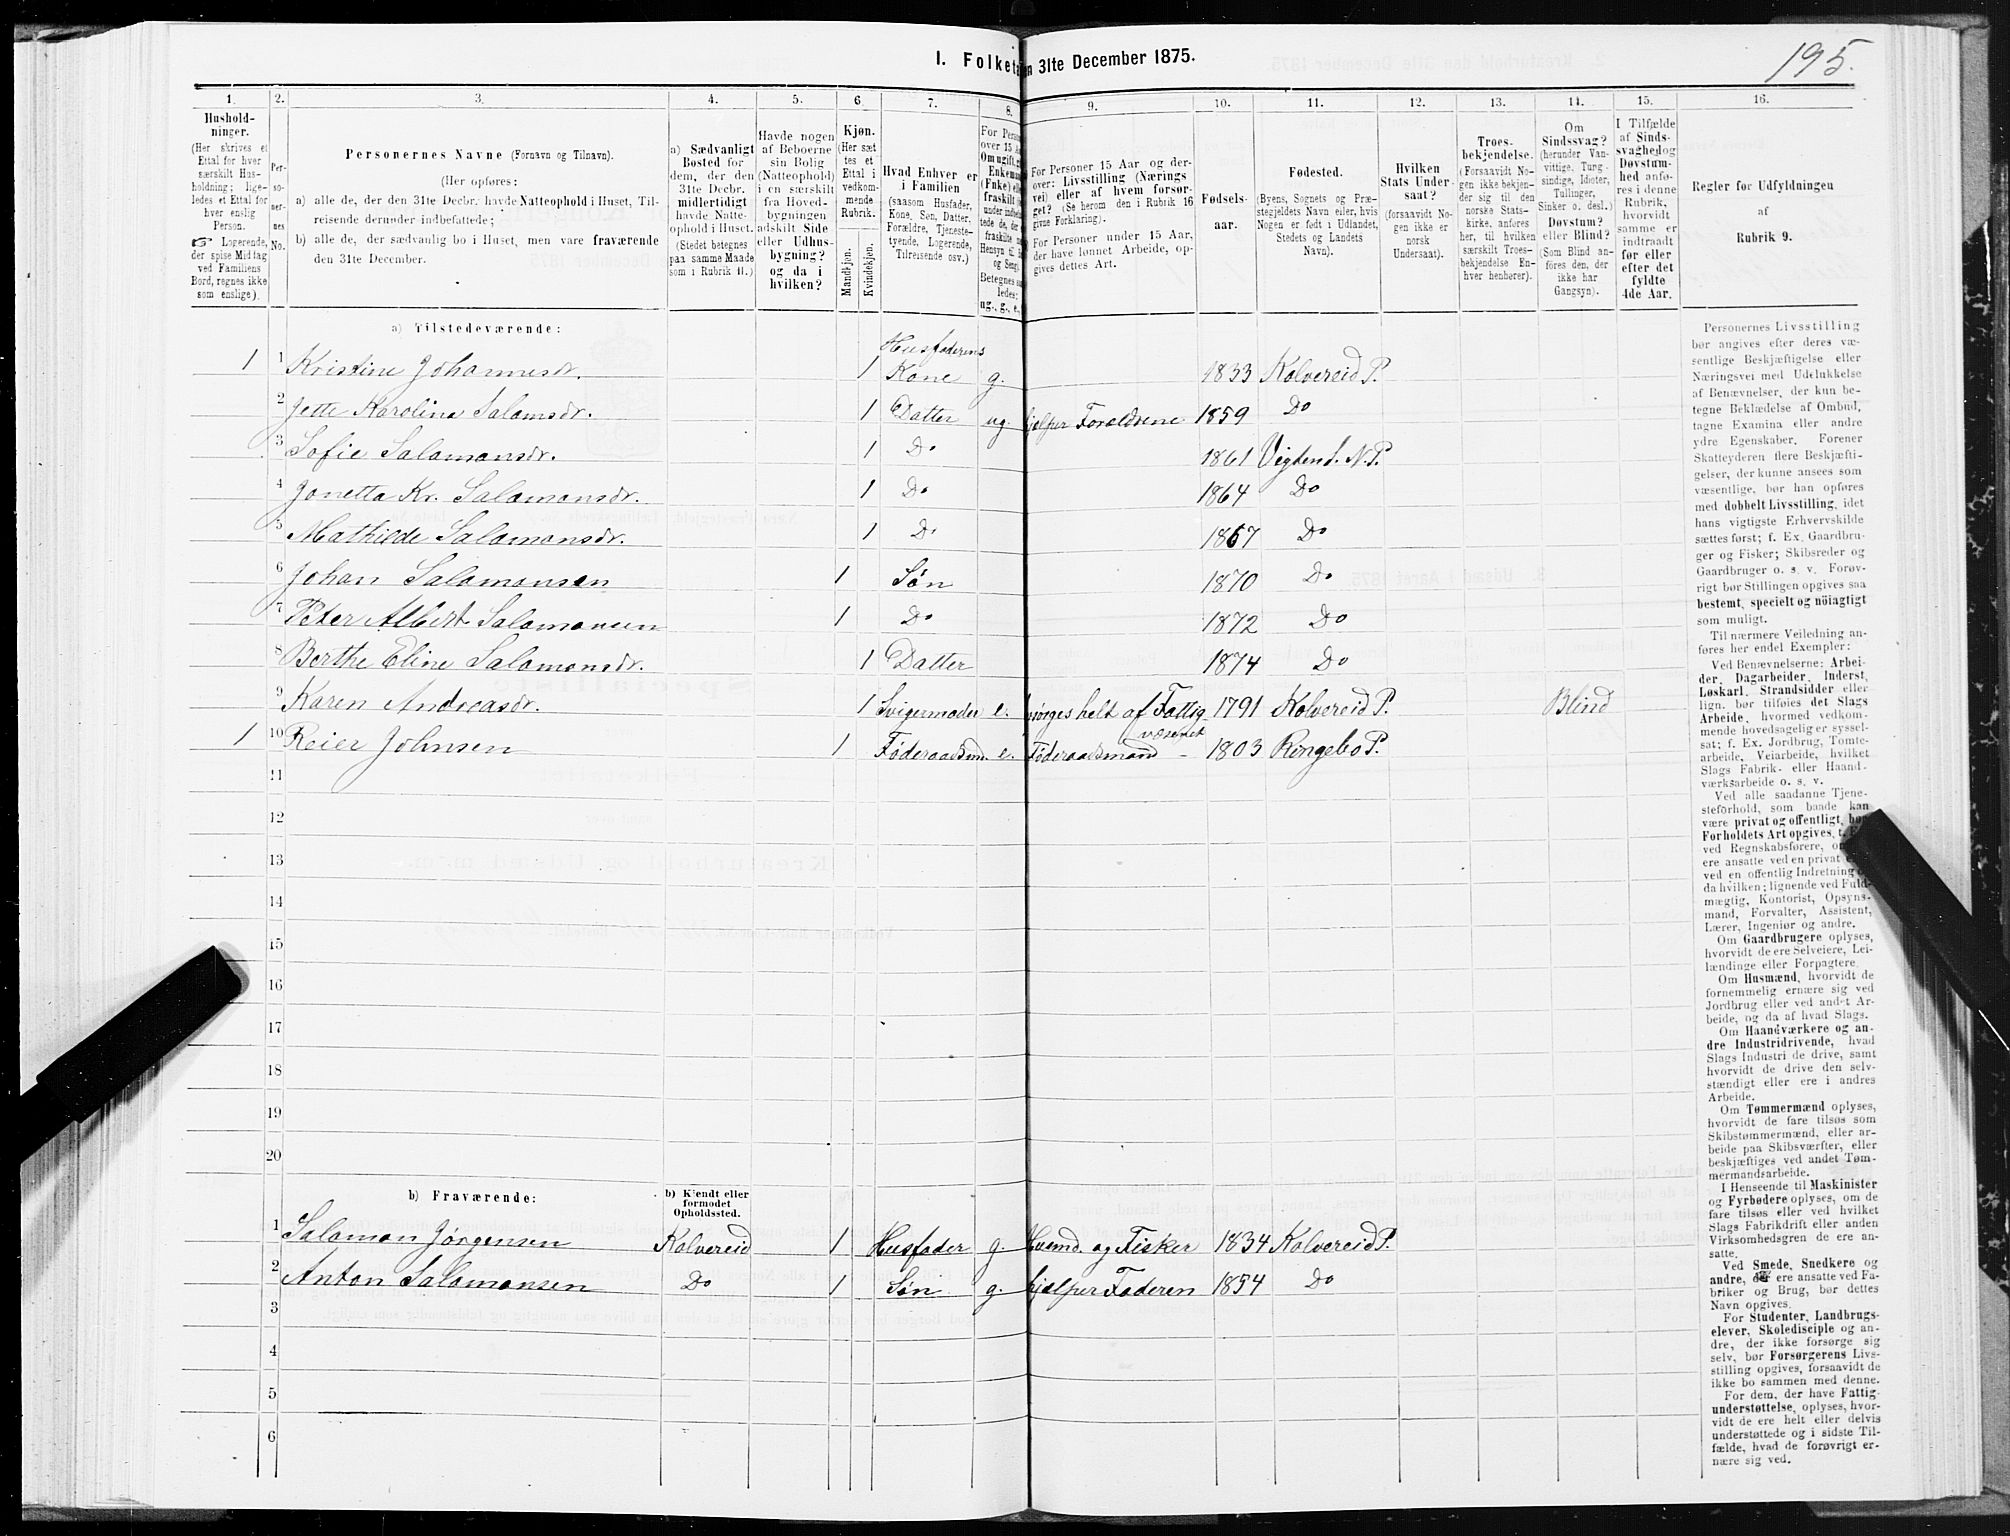 195.
I. Folketa en 31te December 1875.
1. 2. 3. 4. 5. 6. 7. 8. 9. 10. 11. 12. 13. 14. 15. 16.
Hushold-
ninger.
(Her skrives et
Ettal for hver
særskilt Hus-
holdning; lige-
ledes et Ettal for
hver enslig
Person.
☞ Logerende,
der spise Middag
ved Familiens
Bord, regnes ikke
som enslige).
Per-
so-
ner-
nes
No.
Personernes Navne (Fornavn og Tilnavn).
(Her opføres:
a) alle de, der den 31te Decbr. havde Natteophold i Huset, Til-
reisende derunder indbefattede;
b) alle de, der sædvanlig bo i Huset, men vare fraværende
den 31te December.
a) Sædvanligt
Bosted for
dem, der den
31te Decbr.
midlertidigt
havde Natte-
ophold i Huset.
(Stedet betegnes
paa samme Maade
som i Rubrik 11.)
Havde nogen
af Beboerne
sin Bolig
(Natteophold)
i en særskilt
fra Hoved-
bygningen
adskilt Side
eller Udhus-
bygning?
og da i
hvilken?
Kjøn.
(Her sæt
tes et
Ettal i
vedkom-
mende
Rubrik.
Mandkjøn.
Kvindekjøn.
Hvad Enhver er
i Familien
(saasom Husfader,
Kone, Søn, Datter.
Forældre, Tjeneste-
tyende, Logerende,
Tilreisende osv.)
For Perso
over 15 A
Om ugift, g
Enkema
(Enke) ell
fraskilt
under indbe
tede de, de
fraskilte
Hensyn til
og Seng.
Betegnes s
ledes:
ug., g., e.,
For Personer 15 Aar og der-
over: Livsstilling (Nærings
vei) eller af hvem forsør-
get? (Se herom den i Rubrik 16
givne Forklaring).
For Personer under 15 Aar,
der have lønnet Arbeide, op-
gives dettes Art.
Fødsels-
aar.
Fødested.
(Byens, Sognets og Præ-
stegjeldets Navn eier, hvis
Nogen er født i Udlandet,
Stedets og Landets
Navn).
Hvilken
Stats Under-
saat?
(forsaavidt No-
gen ikke er
norsk
Undersaat).
Troes-
bekjendelse.
(Forsaavidt No-
gen ikke bekjen-
der sig til den
norske Stats-
kirke, anføres
her, til hvilken
særskilt Troes-
bekjendelse En-
hver henhører).
Om
Sindssvag?
(herunder Van-
vittige, Tung-
sindige, Idioter,
Tullinger,
Sinker o. desl.)
Døvstum?
eller Blind?
(Som Blind an-
føres den, der
ikke har
Gangsyn).
I Tilfælde
af Sinds-
svaghed og
Døvstum-
hed anfø-
res i denne
Rubrik,
hvorvidt
samme er
indtraadt
før eller
efter det
fyldte
4de Aar.
Regler for Udfyldningen
af
Rubrik 9.
a) Tilstedeværende:
1 1 Kristine Johannesdr. 1 Husfaderens Kone g. 1833 Kolvereid P.
2 Jette Karolina Salamsdr. 1 Datter ug. hjelper Forældrene 1859 Do
3 Sofie Salamonsdr. 1 Do 1861 Vigten f. N. P.
4 Jonetta Kr. Salamonsdr. 1 Do 1864 Do
5 Mathilde Salamonsdr. 1 Do 1867 Do
6 Johan Salamonsen 1 Søn 1870 Do
7 Peter Albert Salamonsen 1 Do 1872 Do
8 Berthe Eline Salamonsdr. 1 Datter 1874 Do
9 Karen Andreasdr. 1 Svigermoder e. sørges helt af Fattigvæsenet 1791 Kolvereid P. Blind
1 10 Reier Johnsen 1 Føderaadsm. e. Føderaadsmand - 1803 Ringebo P.
11
12
13
14
15
16
17
18
19
20
b) Fraværende:
b) Kjendt eller
formodet
Opholdssted.
1 Salamon Jørgensen Kolvereid 1 Husfader g. Husmd. og Fisker 1834 Kolvereid P.
2 Anton Salamonsen Do 1 Søn g. hjelper Faderen 1854 Do
3
4
5
6
Personernes Livsstilling
bør angives efter deres væ-
sentlige Beskjæftigelse eller
Næringsvei med Udelukkelse
af Benævnelser, der kun be-
tegne Beklædelse af Ombud,
tagne Examina eller andre
ydre Egenskaber. Forener
Skatteyderen flere Beskjæfti-
gelser, der kunne ansees som
væsentlige, bør han opføres
med dobbelt Livsstilling, idet
hans vigtigste Erhvervskilde
sættes først; f. Ex. Gaardbru-
ger og Fisker; Skibsreder og
Gaardbruger o. s. v. Forøv-
rigt bør Stillingen opgives saa
bestemt, specielt og nöiagtigt
som muligt.
Til nærmere Veiledning an-
føres her endel Exempler:
Ved Benævnelserne: Arbei-
der, Dagarbeider, Inderst,
Løskarl, Strandsidder eller
lign. bør tilføies det Slags
Arbeide, hvormed vedkom-
mende hovedsagelig er syssel-
sat; f. Ex. Jordbrug, Tomte-
arbeide, Veiarbeide, hvilket
Slags Fabrik- eller Haand-
værksarbeide o. s. v.
Ved alle saadanne Tjene-
steforhold, som baade kan
være privat og offentligt, bør
Forholdets Art opgives, t. E
ved Regnskabsførere, o
ere ansatte ved en privat e
ved en offentlig Indretning
da hvilken; lignende ved Fuld-
mægtig, Kontorist, Opsyns-
mand, Forvalter, Assistent,
Lærer, Ingeniør og andre.
Om Gaardbrugere oplyses,
hvorvidt de ere Selveiere, Lei-
lændinge eller Forpagtere.
Om Husmænd, hvorvidt de
fornemmelig ernære sig ved
Jordbrug eller ved andet Ar-
beide, og da af hvad Slags.
Om Haandværkere og an-
dre Industridrivende, hvad
Slags Industri de drive, samt
hvorvidt de drive den selv-
stændigt eller ere i andres
Arbeide.
Om Tømmermænd oplyses,
hvorvidt de fare tilsøs som
Skibstømmermænd, eller ar-
beide paa Skibsværfter, eller
beskjæftiges ved andet Tøm-
mermandsarbeide.
I Henseende til Maskinister
og Fyrbødere oplyses, om de
fare tilsøs eller ved hvilket
Slags Fabrikdrift eller anden
Virksomhedsgren de ere an-
satte.
Ved Smede, Snedkere og
andre, ere ansatte ved Fa-
briker og Brug, bør dettes
Navn opgives.
For Studenter, Landbrugs-
elever, Skoledisciple og an-
dre, der ikke forsørge sig
selv, bør Forsørgerens Livs-
stilling opgives, forsaavidt de
ikke bo sammen med denne.
For dem, der have Fattig-
understøttelse, oplyses, hvor-
vidt de ere helt eller delvis
understøttede og i sidste Til-
fælde, hvad de forøvrigt er-
nære sig ved.